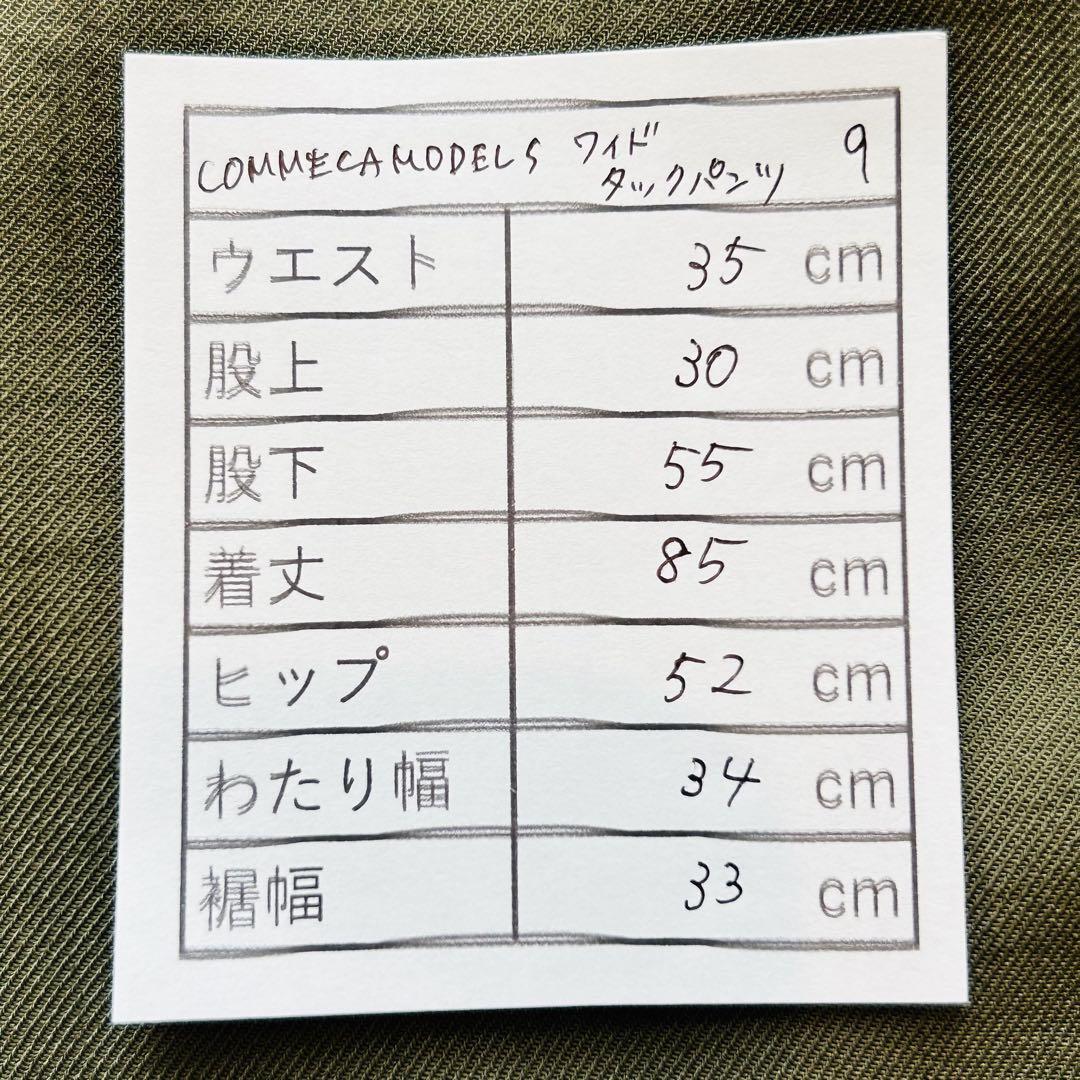 COMMECAMODELS ワイド 9
タックパンツ
ウエスト 35 cm
股上 30 cm
股下 55 cm
着丈 85 cm
ヒップ 52 cm
わたり幅 34 cm
裾幅 33 cm